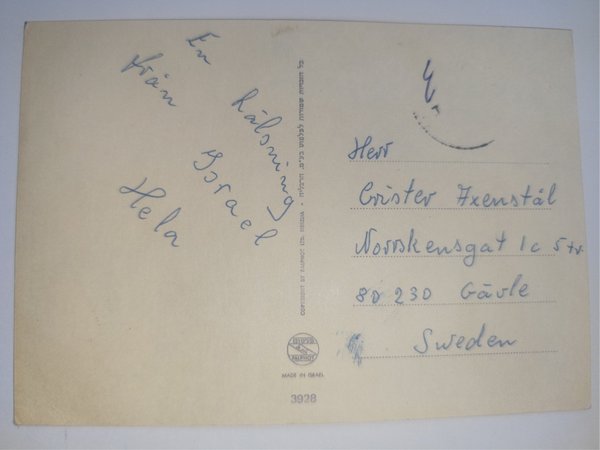 En hälsning
från Israel
Hela
כל הזכויות שמורות לפלפוט בע"מ, הרצליה • COPYRIGHT BY PALPHOT LTD. HERZLIA
PALPHOT
MADE IN ISRAEL
3928
Herr
Crister Axenstål
Norrskensgat 1c 5 tr.
80 230 Gävle
Sweden